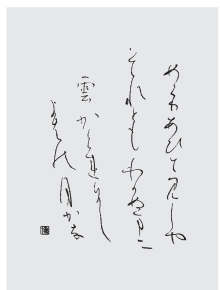 めぐりあひて見しや
それともわかぬまに
雲がくれにし
夜半の月かな